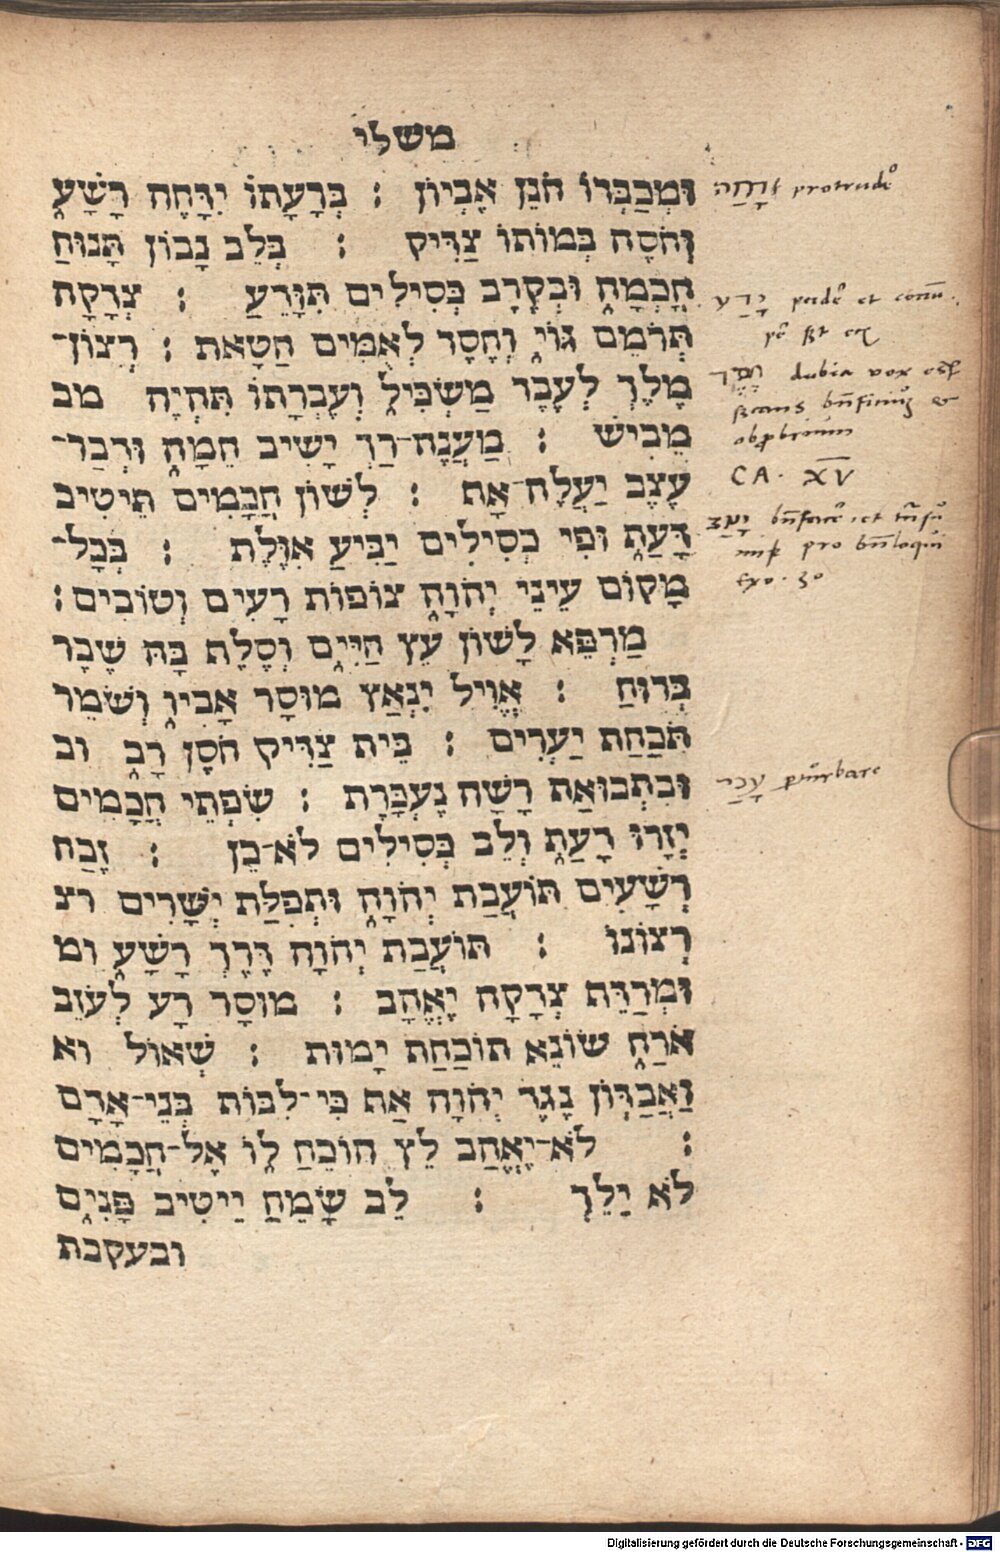 משלי
וּמְכַבְּדוֹ חֹנֵן אֶבְיוֹן : בְּרָעָתוֹ יִדָּחֶה רָשָׁע
וְחֹסֶה בְמוֹתוֹ צַדִּיק : בְּלֵב נָבוֹן תָּנוּחַ
חָכְמָה וּבְקֶרֶב כְּסִילִים תִּוָּדֵעַ : צְדָקָה
תְּרֹמֵם גּוֹי וְחֶסֶד לְאֻמִּים חַטָּאת : רְצוֹן־
מֶלֶךְ לְעֶבֶד מַשְׂכִּיל וְעֶבְרָתוֹ תִּהְיֶה מב
מֵבִישׁ : מַעֲנֶה־רַךְ יָשִׁיב חֵמָה וּדְבַר־
עֶצֶב יַעֲלֶה־אַת : לְשׁוֹן חֲכָמִים תֵּיטִיב
דָּעַת וּפִי כְסִילִים יַבִּיעַ אִוֶּלֶת : בְּכָל־
מָקוֹם עֵינֵי יְהֹוָה צוֹפוֹת רָעִים וְטוֹבִים :
מַרְפֵּא לָשׁוֹן עֵץ חַיִּים וְסֶלֶת בָּהּ שֶׁבֶר
בְּרוּחַ : אֱוִיל יִנְאַץ מוּסַר אָבִיו וְשֹׁמֵר
תֹּכַחַת יַעְרִים : בֵּית צַדִּיק חֹסֶן רָב וב
וּבִתְבוּאַת רָשָׁה נֶעְכָּרֶת : שִׂפְתֵי חֲכָמִים
יְזָרוּ דָעַת וְלֵב כְּסִילִים לֹא־כֵן : זֶבַח
רְשָׁעִים תּוֹעֲבַת יְהֹוָה וּתְפִלַּת יְשָׁרִים רצ
רְצוֹנוֹ : תּוֹעֲבַת יְהֹוָה דֶּרֶךְ רָשָׁע ומ
וּמְרַדֵּת צְדָקָה יֶאֱהָב : מוּסָר רָע לְעֹזֵב
אֹרַח שׂוֹנֵא תוֹכַחַת יָמוּת : שְׁאוֹל וא
וַאֲבַדּוֹן נֶגֶד יְהֹוָה אַת כִּי־לִבּוֹת בְּנֵי־אָדָם
: לֹא־יֶאֱהַב לֵץ הוֹכֵחַ לוֹ אֶל־חֲכָמִים
לֹא יֵלֵךְ : לֵב שָׂמֵחַ יֵיטִיב פָּנִים
ובעקבת
דָחָה protrudere
CA. XV
עָכַר perturbare
Digitalisierung gefördert durch die Deutsche Forschungsgemeinschaft - DFG